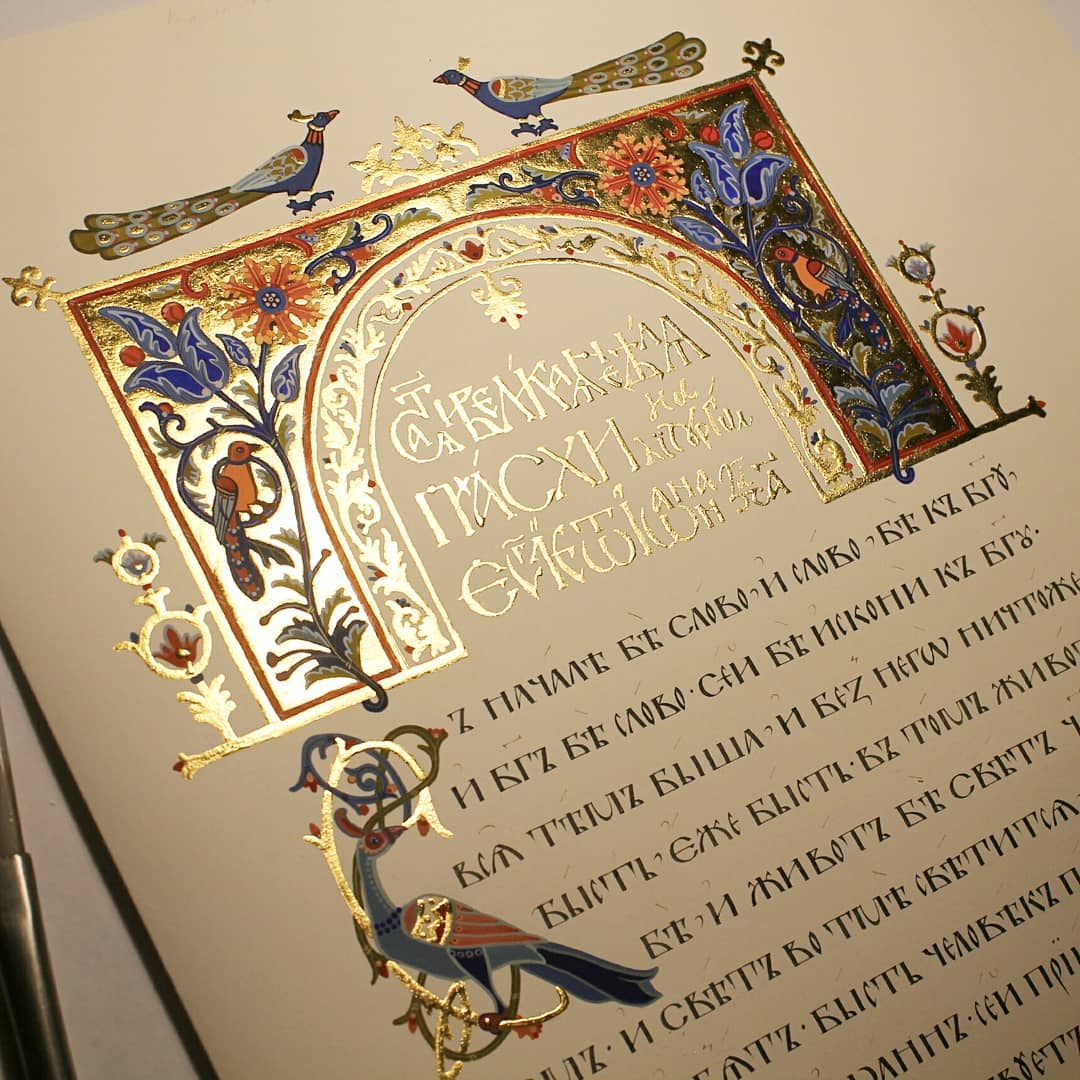 Ст҃аѧ и великаѧ
Пасхи на литꙋргїи
Еѵ҃лїе ѿ Іѡанна
Въ началѣ бѣ слово, и слово, бѣ къ бг҃ꙋ,
и бг҃ъ бѣ слово. сеи бѣ искони къ бг҃ꙋ.
всѧ тѣмъ быша, и без негѡ ничтоже
бысть, еже бысть. въ томъ живот
бѣ, и животъ бѣ свѣтъ
и свѣтъ во тмѣ свѣтитсѧ
бысть человѣкъ
сей